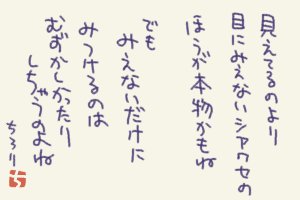 見えてるのより
目にみえないシアワセの
ほうが本物かもね
でも
みえないだけに
みつけるのは
むずかしかったり
しちゃうのよね
ちろり